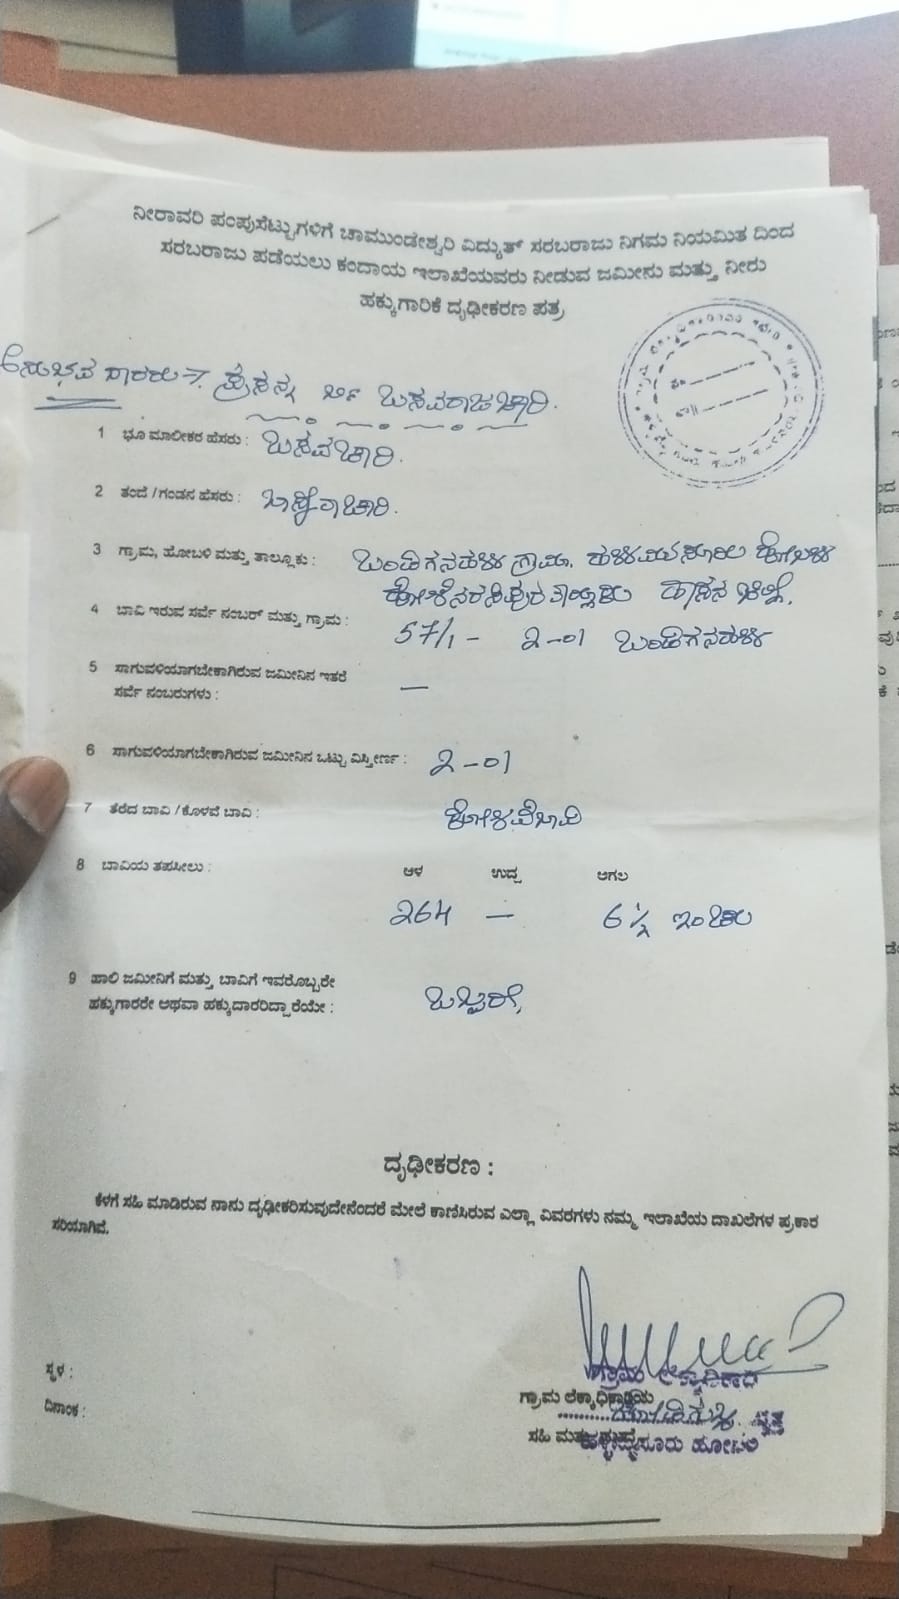 ನೀರಾವರಿ ಪಂಪುಸೆಟ್ಟುಗಳಿಗೆ ಚಾಮುಂಡೇಶ್ವರಿ ವಿದ್ಯುತ್ ಸರಬರಾಜು ನಿಗಮ ನಿಯಮಿತ ದಿಂದ
ಸರಬರಾಜು ಪಡೆಯಲು ಕಂದಾಯ ಇಲಾಖೆಯವರು ನೀಡುವ ಜಮೀನು ಮತ್ತು ನೀರು
ಹಕ್ಕುಗಾರಿಕೆ ದೃಢೀಕರಣ ಪತ್ರ
ಪ್ರಸನ್ನ ಬಿನ್ ಬಸವರಾಜಚಾರಿ.
1 ಭೂ ಮಾಲೀಕರ ಹೆಸರು : ಬಸವಚಾರಿ.
2 ತಂದೆ / ಗಂಡನ ಹೆಸರು :
3 ಗ್ರಾಮ, ಹೋಬಳಿ ಮತ್ತು ತಾಲ್ಲೂಕು : ಗ್ರಾಮ, ಹಳ್ಳಿಮೈಸೂರು ಹೋಬಳಿ
ಹೊಳೆನರಸಿಪುರ ತಾಲ್ಲೂಕು ಹಾಸನ ಜಿಲ್ಲೆ.
4 ಬಾವಿ ಇರುವ ಸರ್ವೆ ನಂಬರ್ ಮತ್ತು ಗ್ರಾಮ : 57/1 - 2-01
5 ಸಾಗುವಳಿಯಾಗಬೇಕಾಗಿರುವ ಜಮೀನಿನ ಇತರೆ
ಸರ್ವೆ ನಂಬರುಗಳು : —
6 ಸಾಗುವಳಿಯಾಗಬೇಕಾಗಿರುವ ಜಮೀನಿನ ಒಟ್ಟು ವಿಸ್ತೀರ್ಣ : 2-01
7 ತೆರೆದ ಬಾವಿ / ಕೊಳವೆ ಬಾವಿ : ಕೊಳವೆಬಾವಿ
8 ಬಾವಿಯ ತಪಸೀಲು : ಆಳ ಉದ್ದ ಅಗಲ
264 — 6½ ಇಂಚು
9 ಹಾಲಿ ಜಮೀನಿಗೆ ಮತ್ತು ಬಾವಿಗೆ ಇವರೊಬ್ಬರೇ
ಹಕ್ಕುಗಾರರೇ ಅಥವಾ ಹಕ್ಕುದಾರರಿದ್ದಾರೆಯೇ : ಒಬ್ಬರೆ,
ದೃಢೀಕರಣ :
ಕೆಳಗೆ ಸಹಿ ಮಾಡಿರುವ ನಾನು ದೃಢೀಕರಿಸುವುದೇನೆಂದರೆ ಮೇಲೆ ಕಾಣಿಸಿರುವ ಎಲ್ಲಾ ವಿವರಗಳು ನಮ್ಮ ಇಲಾಖೆಯ ದಾಖಲೆಗಳ ಪ್ರಕಾರ
ಸರಿಯಾಗಿವೆ.
ಸ್ಥಳ :
ದಿನಾಂಕ :
ಗ್ರಾಮ ಲೆಕ್ಕಾಧಿಕಾರಿಯ
ವೃತ್ತ
ಹಳ್ಳಿಮೈಸೂರು ಹೋಬಳಿ